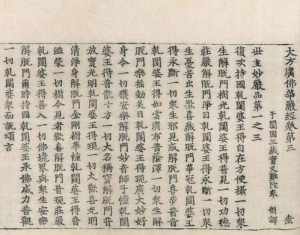 大方廣佛華嚴經卷第三　壹
于闐國三藏實叉難陀奉　制譯
世主妙嚴品第一之三
復次持國乾闥婆王得自在方便攝一切衆
生解脫門樹光乾闥婆王得普見一切功德
莊嚴解脫門淨目乾闥婆王得永斷一切衆
生憂苦出生歡喜藏解脫門華冠乾闥婆王
得永斷一切衆生邪見惑解脫門喜步普音
乾闥婆王得如雲廣布普蔭澤一切衆生解
脫門樂搖動美目乾闥婆王得現廣大妙好
身令一切獲安樂解脫門妙音師子幢乾闥
婆王得普散十方一切大名稱寶解脫門普
放寶光明乾闥婆王得現一切大歡喜光明
清淨身解脫門金剛樹華幢乾闥婆王得普
滋榮一切樹令見者歡喜解脫門普現莊嚴
乾闥婆王得善入一切佛境界與衆生安樂
解脫門爾時持國乾闥婆王承佛威力普觀
一切乾闥婆衆而說頌言